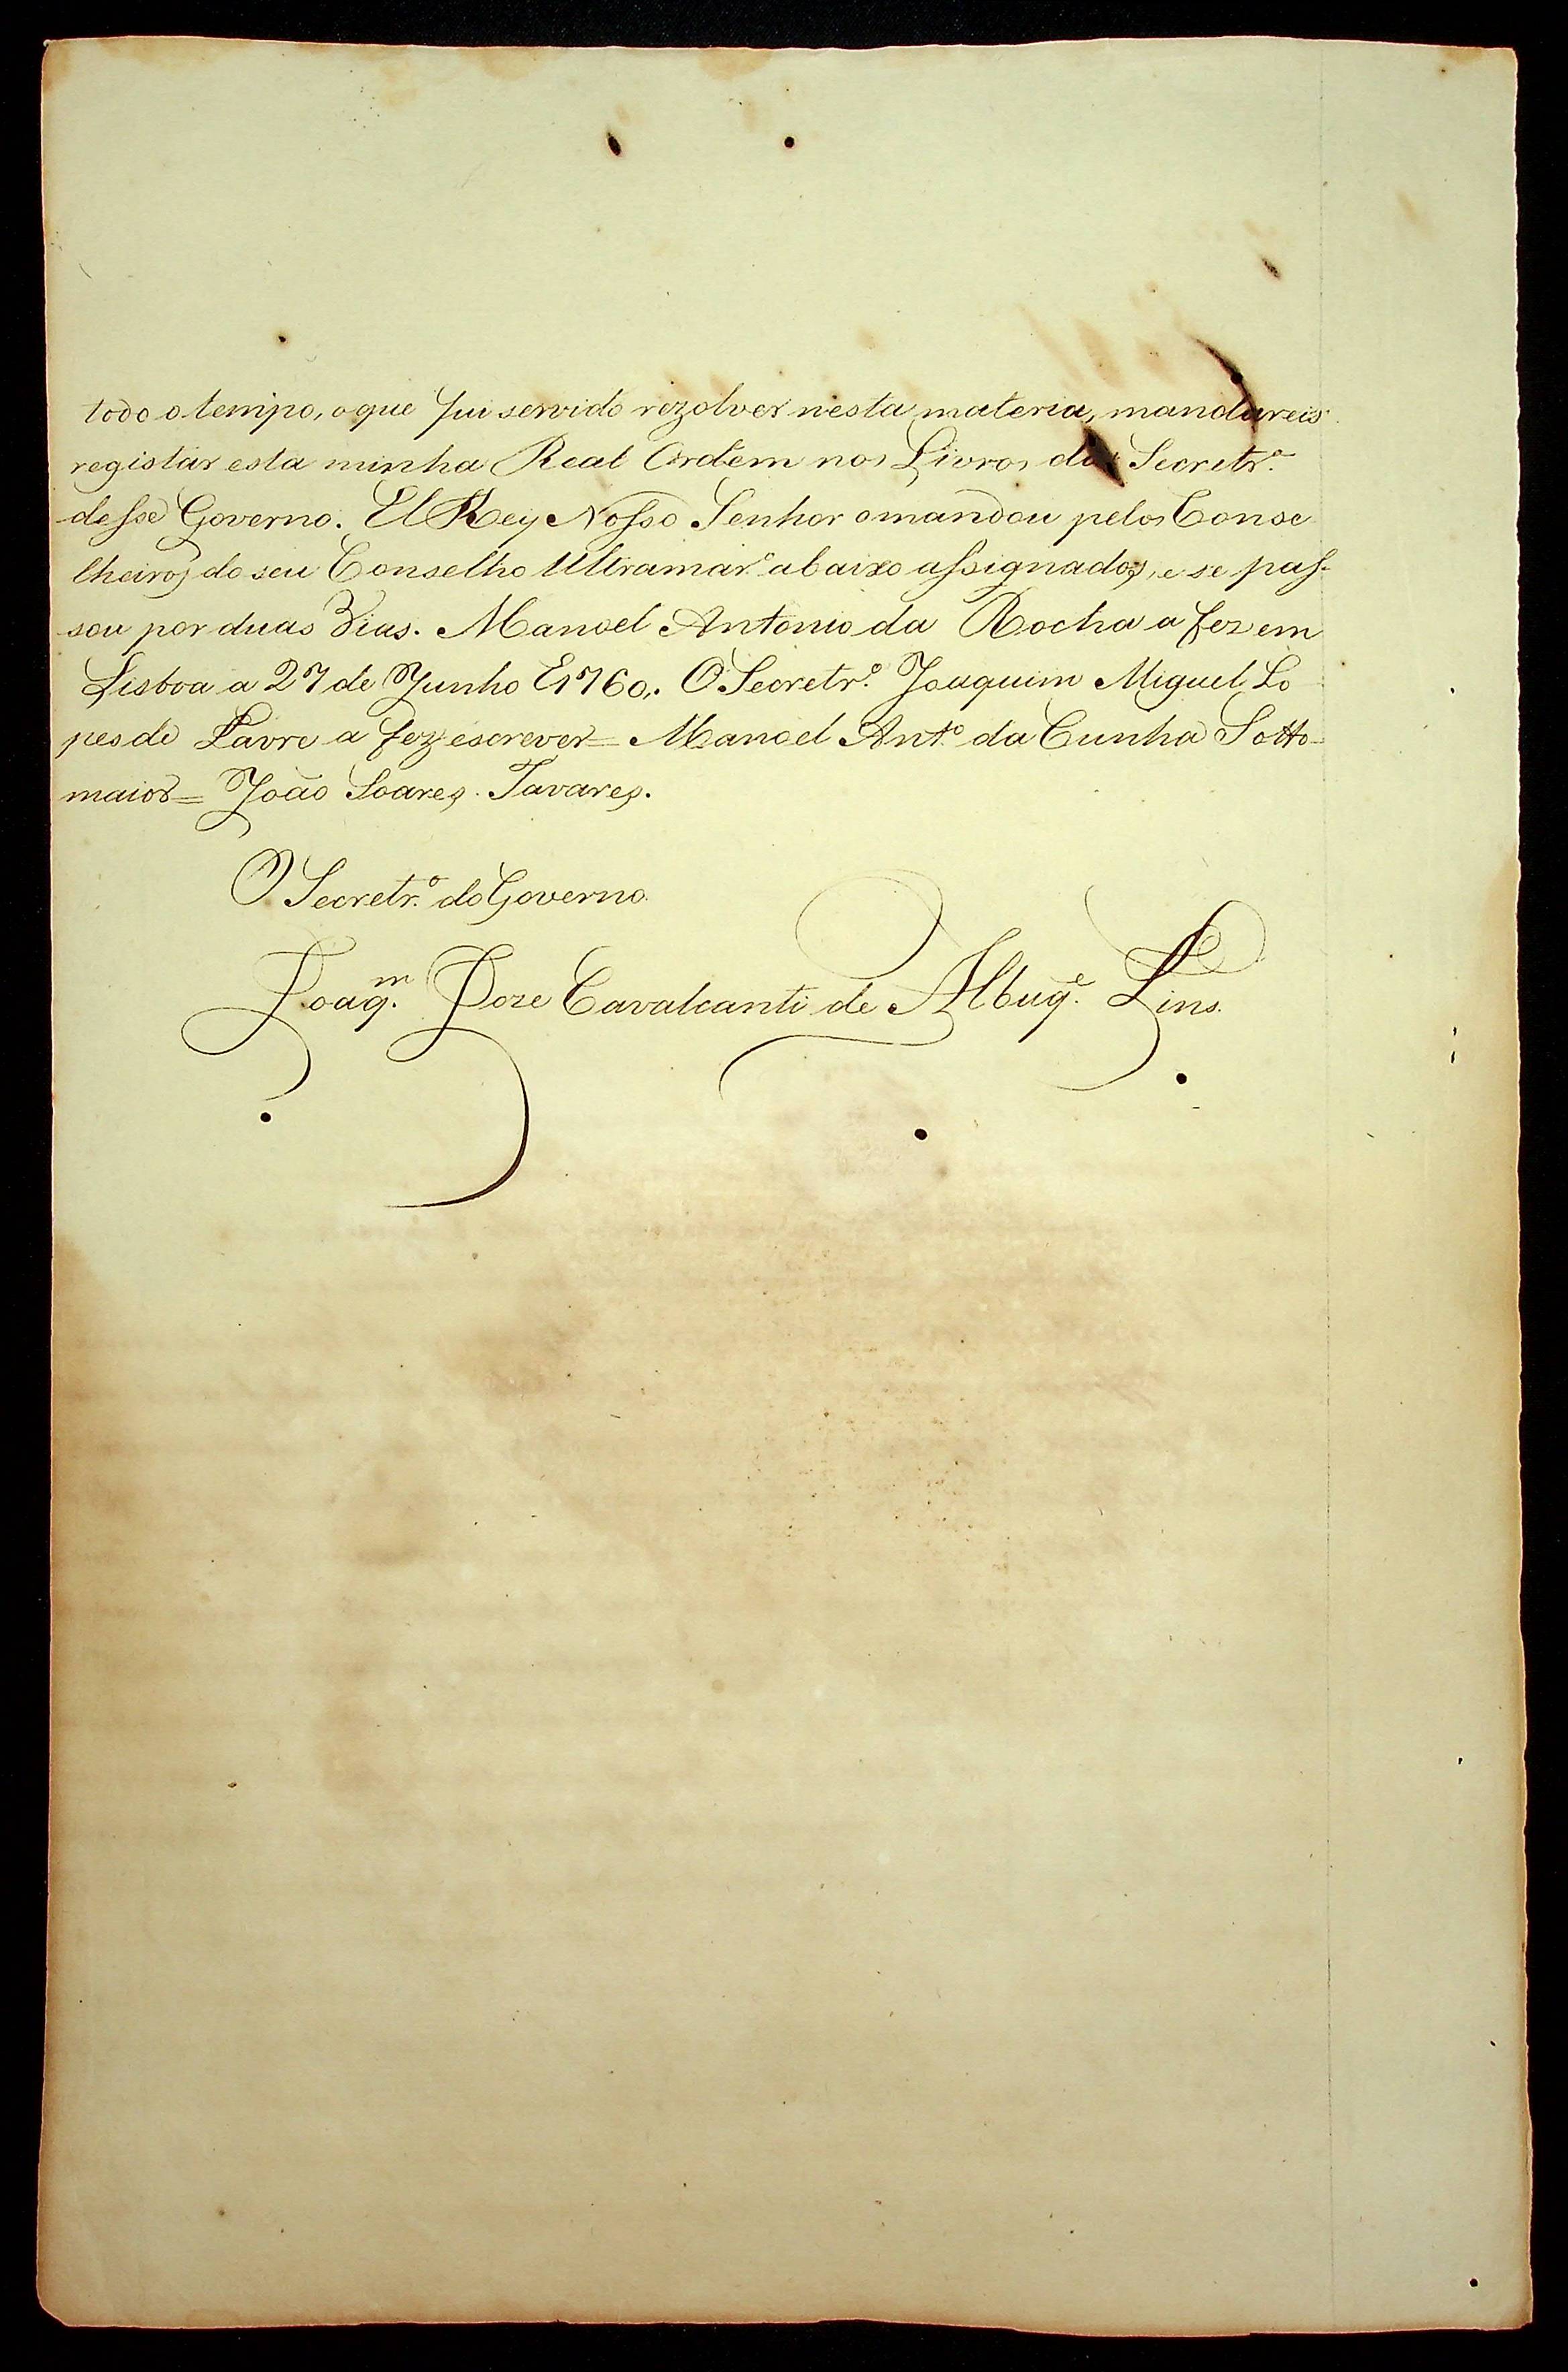 todo o tempo, o que fui servido rezolver nesta materia, mandareis
registar esta minha Real Ordem nos Livros da Secretr.ª
desse Governo. El Rey Nosso Senhor o mandou pelos Conse
lheiros do seu Conselho Ultramar.º abaixo assignados, e se pas-
sou por duas Vias. Manoel Antonio da Rocha a fez em
Lisboa a 27 de Junho E1760,. O Secretr.º Joaquim Miguel Lo
pes de Lavre a fez escrever = Manoel Ant.º da Cunha Sotto-
maior = João Soares Tavares.
O Secretr.º do Governo.
Joaq.m Joze Cavalcanti de Albuq.e Lins.